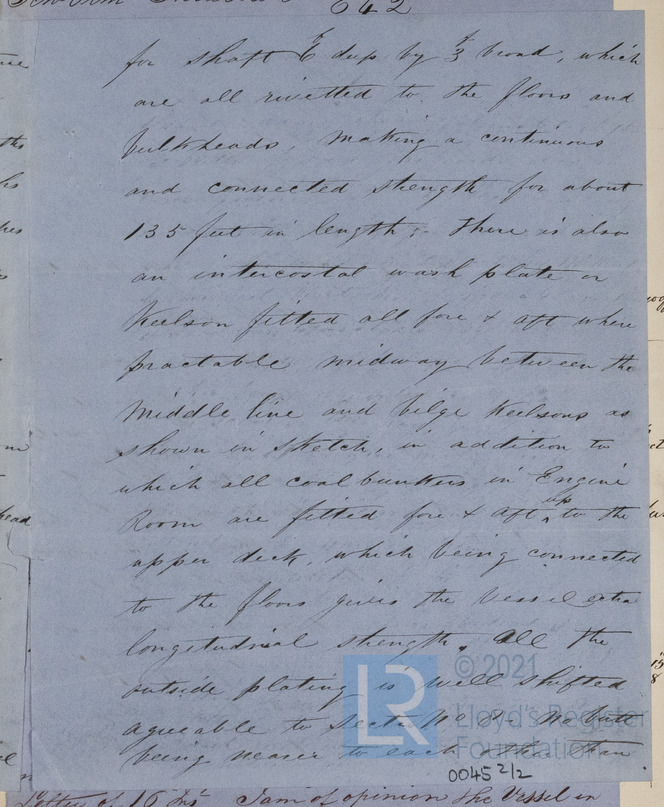 642
for shaft 6 deep by 3 broad, which
are all rivetted to the floors and
bulkheads, making a continuous
and connected strength for about
135 feet in length; There is also
an intercostal wash plate or
Keelson fitted all fore & aft where
practable midway between the
middle line and bilge Keelsons as
shown in sketch, in addition to
which all coal bunkers in Engine
Room are fitted fore & aft up to the
upper deck, which being connected
to the floors gives the Vessel extra
longitudinal strength, all the
outside plating is well shifted
agreeable to Sectn No butt
being nearer to each other than
© 2021
LR
Lloyd's Register
Foundation
0045 2/2
I am of opinion the Vessel in